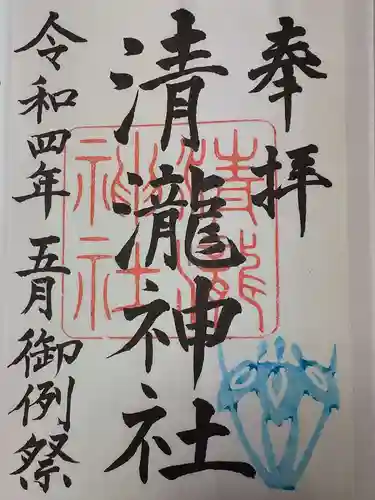 奉拝
清瀧神社
清瀧神社
令和四年五月御例祭